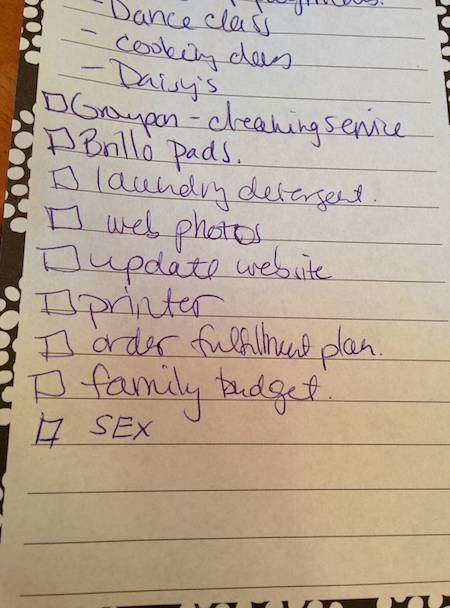 - Dance class
- cooking class
- Daisy's
Groupon - cleaning service
Brillo pads.
laundry detergent.
web photos
update website
printer
order fulfillment plan.
family budget.
SEX